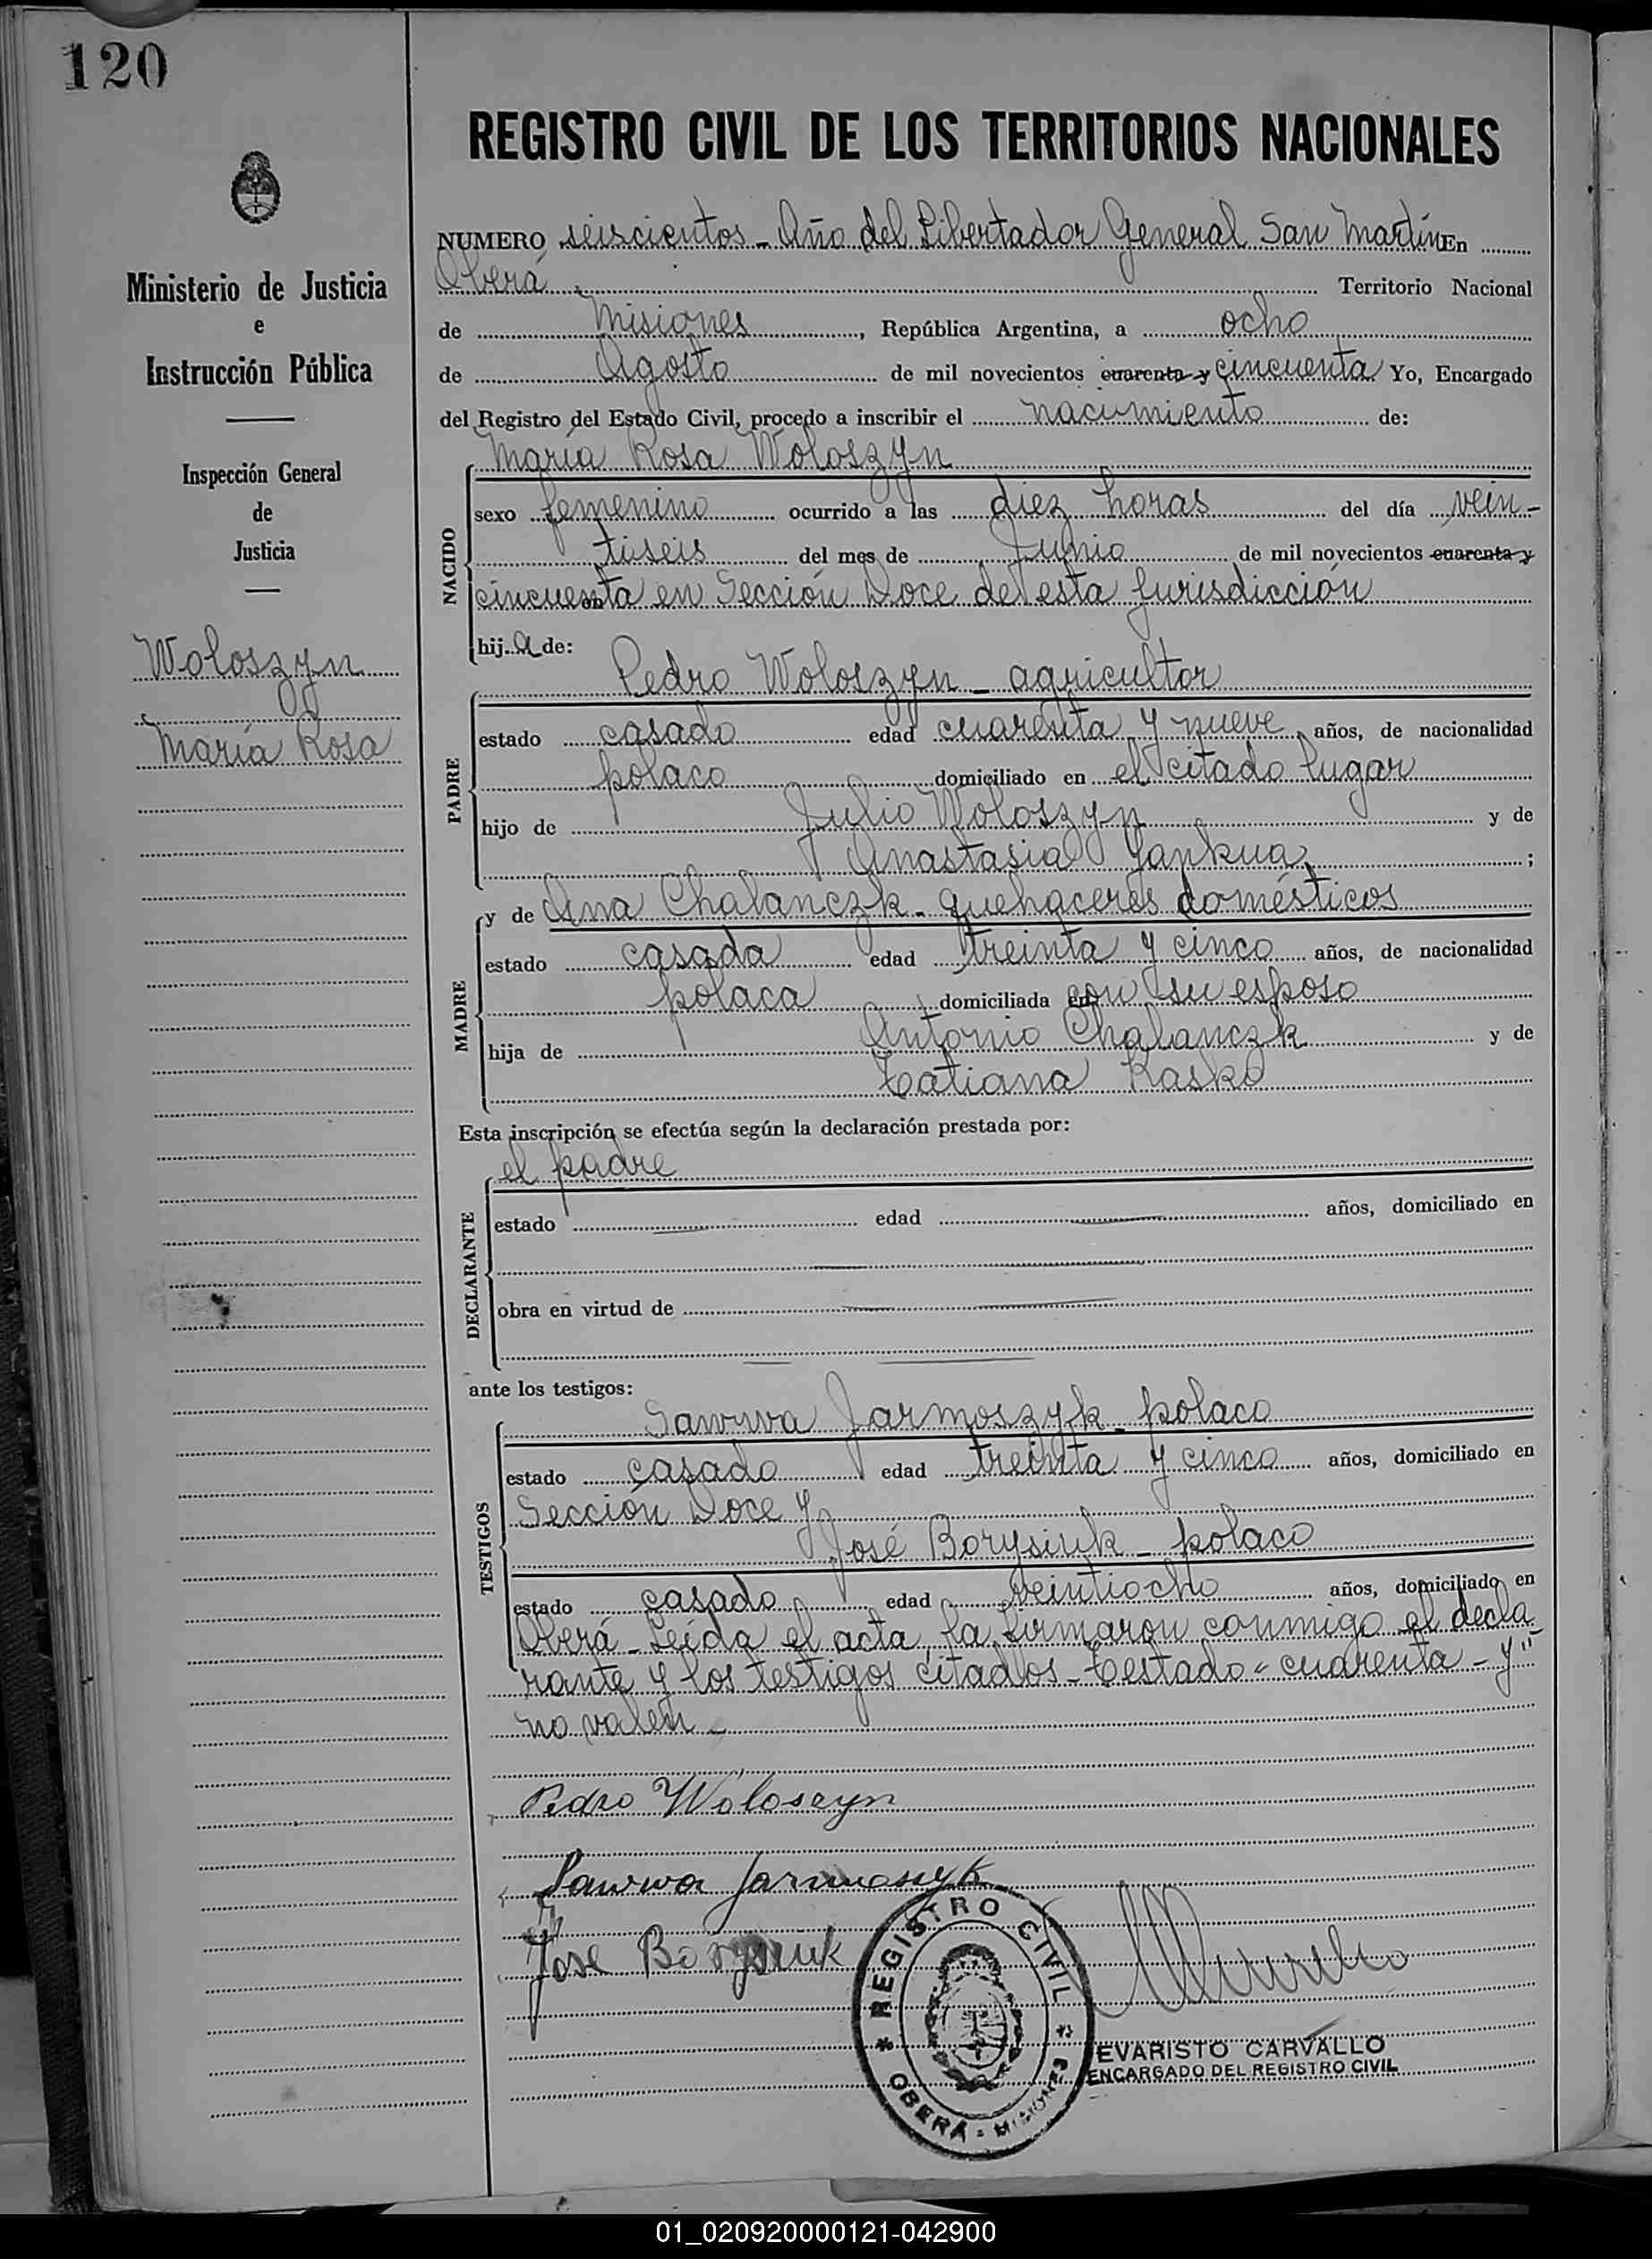 120
REGISTRO CIVIL DE LOS TERRITORIOS NACIONALES
Ministerio de Justicia
e
Instrucción Pública
Inspección General
de
Justicia
Woloszyn
María Rosa
NUMERO seiscientos - Año del Libertador General San Martín En
Oberá Territorio Nacional
de Misiones, República Argentina, a ocho
de Agosto de mil novecientos cuarenta y cincuenta Yo, Encargado
del Registro del Estado Civil, procedo a inscribir el nacimiento de:
María Rosa Woloszyn
NACIDO
sexo femenino ocurrido a las diez horas del día vein-
tiseis del mes de Junio de mil novecientos cuarenta y
cincuenta en Sección Doce de esta Jurisdicción
hij a de:
PADRE
Pedro Woloszyn - agricultor
estado casado edad cuarenta y nueve años, de nacionalidad
polaco domiciliado en el citado lugar
hijo de Julio Woloszyn y de
Anastasia Yankua ;
MADRE
y de Ana Chalanczk - quehaceres domésticos
estado casada edad treinta y cinco años, de nacionalidad
polaca domiciliada en con su esposo
hija de Antonio Chalanczk y de
Tatiana Kasko
Esta inscripción se efectúa según la declaración prestada por:
DECLARANTE
el padre
estado edad años, domiciliado en
obra en virtud de
ante los testigos:
TESTIGOS
Sawwa Jarmoszyk - polaco
estado casado edad treinta y cinco años, domiciliado en
Sección Doce y
José Borysiuk - polaco
estado casado edad veintiocho años, domiciliado en
Oberá - Leída el acta, la firmaron conmigo el decla
rante y los testigos citados - Testado "cuarenta - y"
no valen -
Pedro Woloszyn
Sawwa Jarmoszyk
Jose Borysiuk
REGISTRO CIVIL
* OBERÁ - MISIONES *
EVARISTO CARVALLO
ENCARGADO DEL REGISTRO CIVIL
01_020920000121-042900